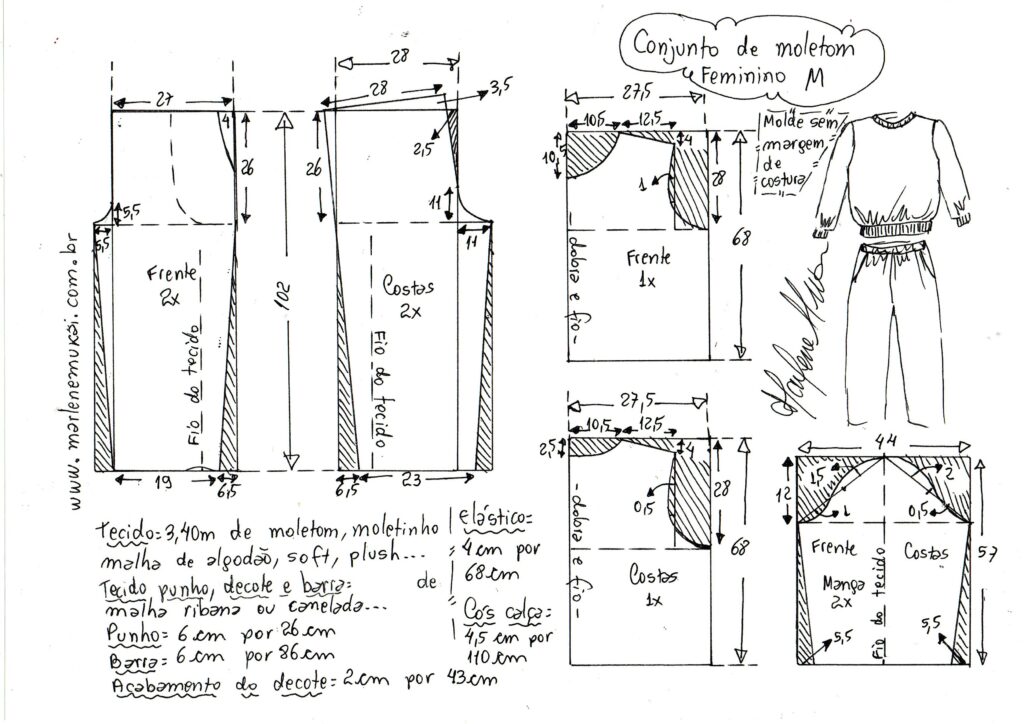 Conjunto de moletom
Feminino M
Molde sem
margem
de
costura
28
27
28
3,5
4
2,5
26
26
11
5,5
5,5
11
102
Frente
2x
Costas
2x
Fio do tecido
Fio do tecido
19
6,5
6,5
23
www.marlenemukai.com.br
27,5
10,5
12,5
10,5
4
1
28
68
Frente
1x
-dobra e fio-
27,5
10,5
12,5
2,5
4
0,5
28
68
Costas
1x
-dobra e fio-
44
12
1,5
2
1
0,5
57
Frente
Costas
Manga
2x
Fio do tecido
5,5
5,5
Marlene Mukai
Tecido=3,40m de moletom, moletinho
malha de algodão, soft, plush...
Tecido punho, decote e barra= de
malha ribana ou canelada...
Punho= 6 cm por 26 cm
Barra= 6 cm por 86 cm
Acabamento do decote= 2 cm por 43 cm
elástico=
4 cm por
68 cm
Cós calça=
4,5 cm por
110 cm